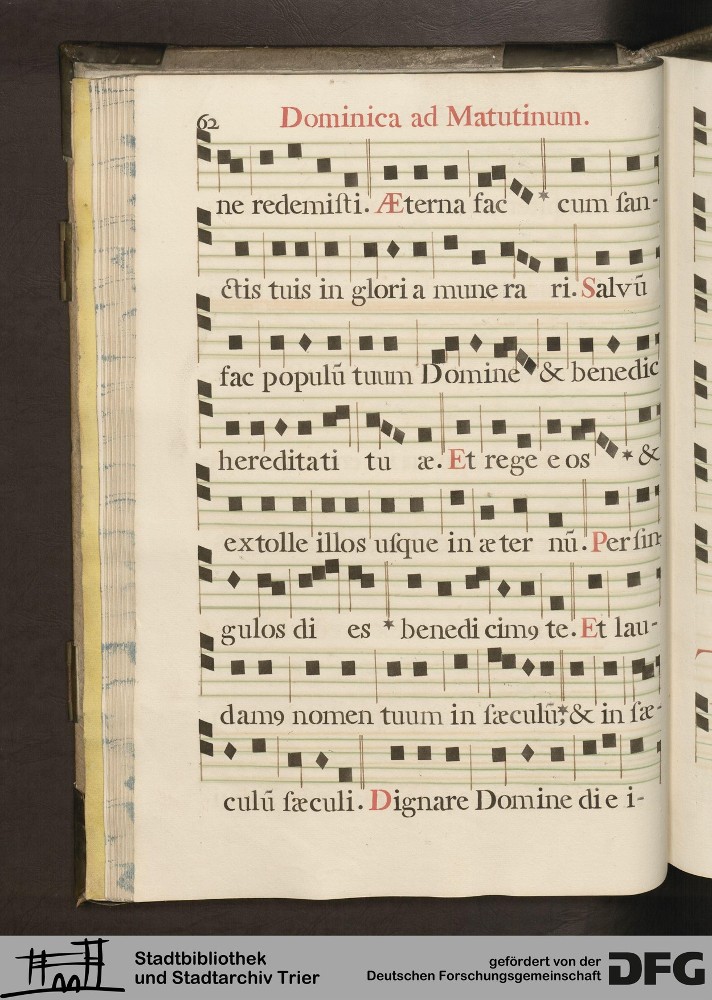 62 Dominica ad Matutinum.
ne redemiſti. Æterna fac * cum ſan-
ctis tuis in gloria munera ri. Salvū
fac populū tuum Domine & benedic
hereditati tu æ. Et rege eos * &
extolle illos uſque in æter nū. Per ſin
gulos di es * benedicimꝰ te. Et lau-
damꝰ nomen tuum in ſæculū,* & in ſæ-
culū ſæculi. Dignare Domine die i-
Stadtbibliothek
und Stadtarchiv Trier
gefördert von der
Deutschen Forschungsgemeinschaft
DFG